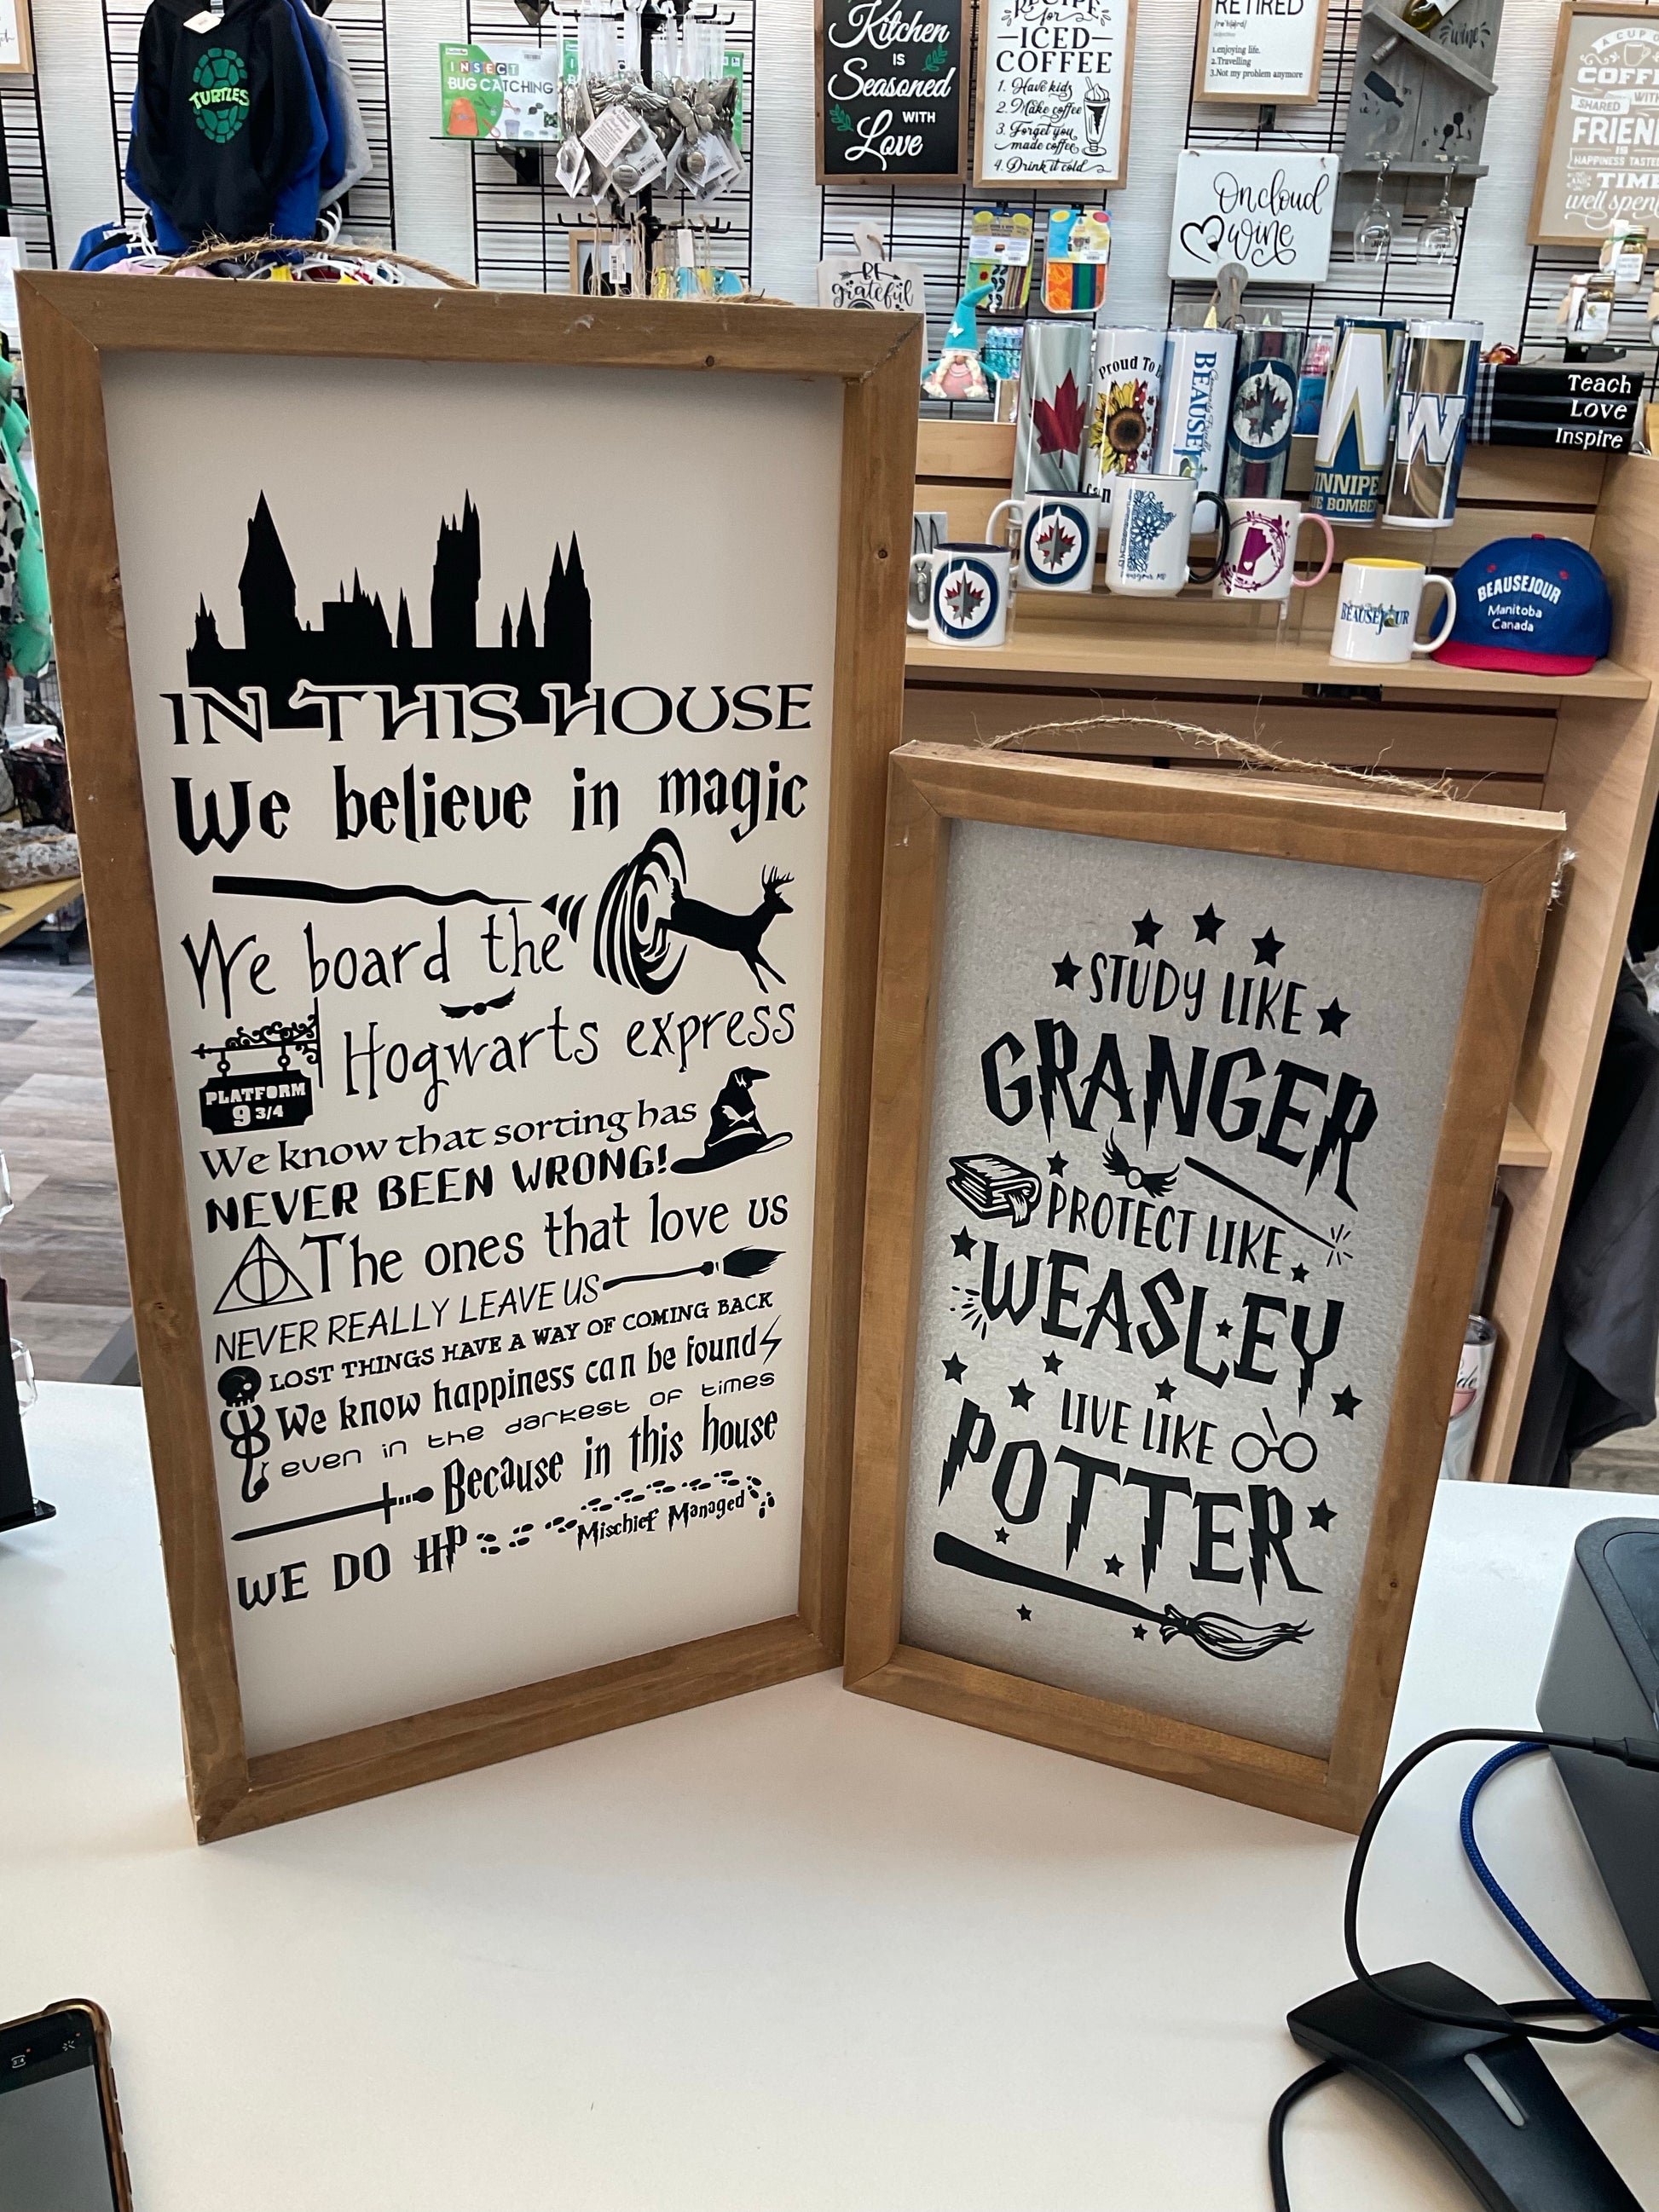 TURTLES
INSECT
BUG CATCHING
Kitchen
IS
Seasoned
WITH
Love
RECIPE
for
ICED
COFFEE
1. Have kids
2. Make coffee
3. Forget you
made coffee
4. Drink it cold
RETIRED
1.enjoying life.
2.Travelling
3.Not my problem anymore
wine
On cloud
wine
A CUP OF
COFFEE
SHARED WITH
FRIEN
IS
HAPPINESS TASTED
TIME
well spent
BE
grateful
Proud To
BEAUSEJ
WINNIPE
UE BOMBE
W
Teach
Love
Inspire
BEAUSEJOUR
BEAUSEJOUR
Manitoba
Canada
IN THIS HOUSE
We believe in magic
We board the
Hogwarts express
PLATFORM
9 3/4
We know that sorting has
NEVER BEEN WRONG!
The ones that love us
NEVER REALLY LEAVE US
LOST THINGS HAVE A WAY OF COMING BACK
We know happiness can be found
even in the darkest of times
Because in this house
WE DO HP
Mischief Managed
STUDY LIKE
GRANGER
PROTECT LIKE
WEASLEY
LIVE LIKE
POTTER